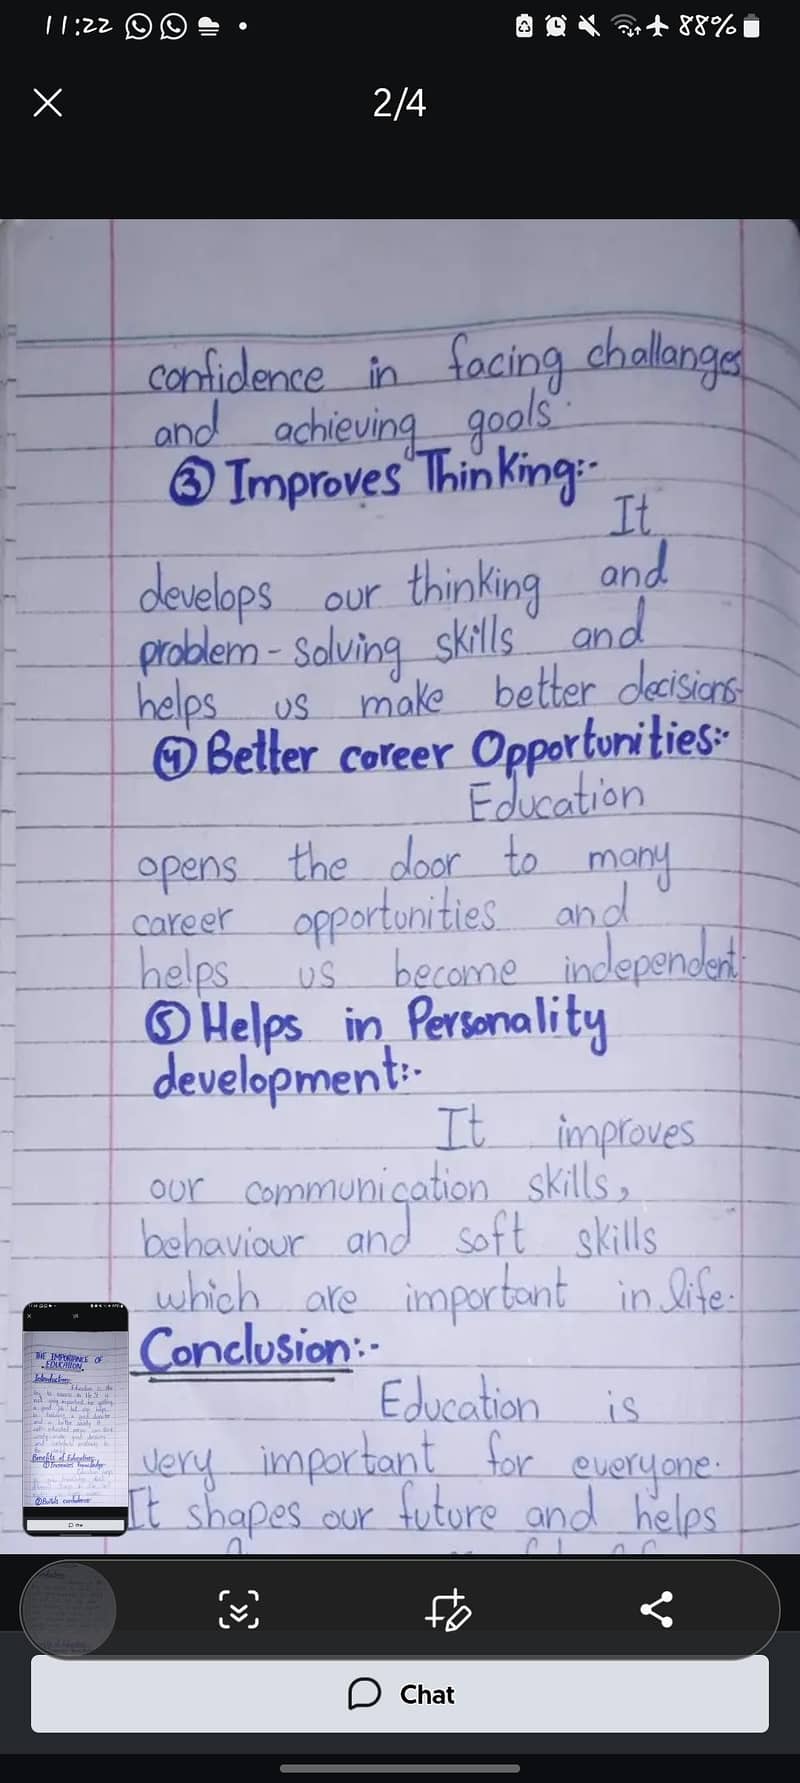 11:22
88%
2/4
confidence in facing challanges
and achieving goals.
③ Improves Thinking:-
It
develops our thinking and
problem-solving skills and
helps us make better decisions.
④ Better career Opportunities:-
Education
opens the door to many
career opportunities and
helps us become independent.
⑤ Helps in Personality
development:-
It improves
our communication skills,
behaviour and soft skills
which are important in life.
THE IMPORTANCE OF
EDUCATION
Introduction
Benefits of Education
② Builds confidence
Conclusion:-
Education is
very important for everyone.
It shapes our future and helps
Chat